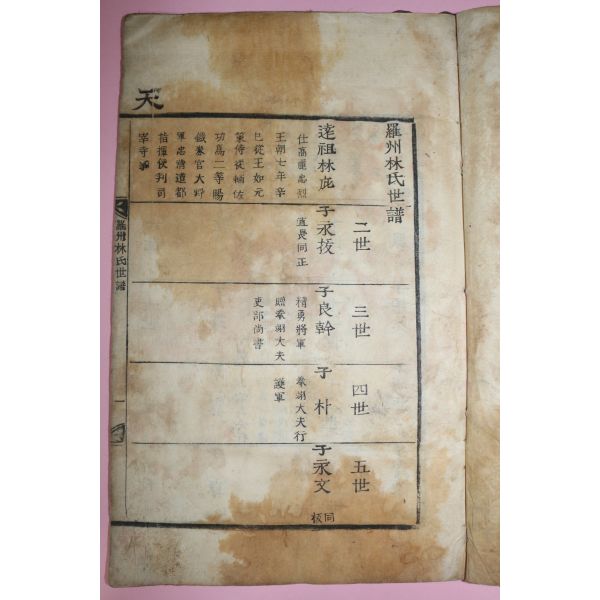 天
羅州林氏世譜
遠祖林庇
仕高麗忠烈
王朝七年辛
巳從王如元
策侍從輔佐
功爲二等賜
鐵券官大將
軍忠淸道都
指揮使判司
宰寺事
二世
子永
直長同正
三世
子良幹
精勇將軍
贈奉翊大夫
吏部尙書
四世
子朴
奉翊大夫行
護軍
五世
子永文
同板
羅州林氏世譜
一